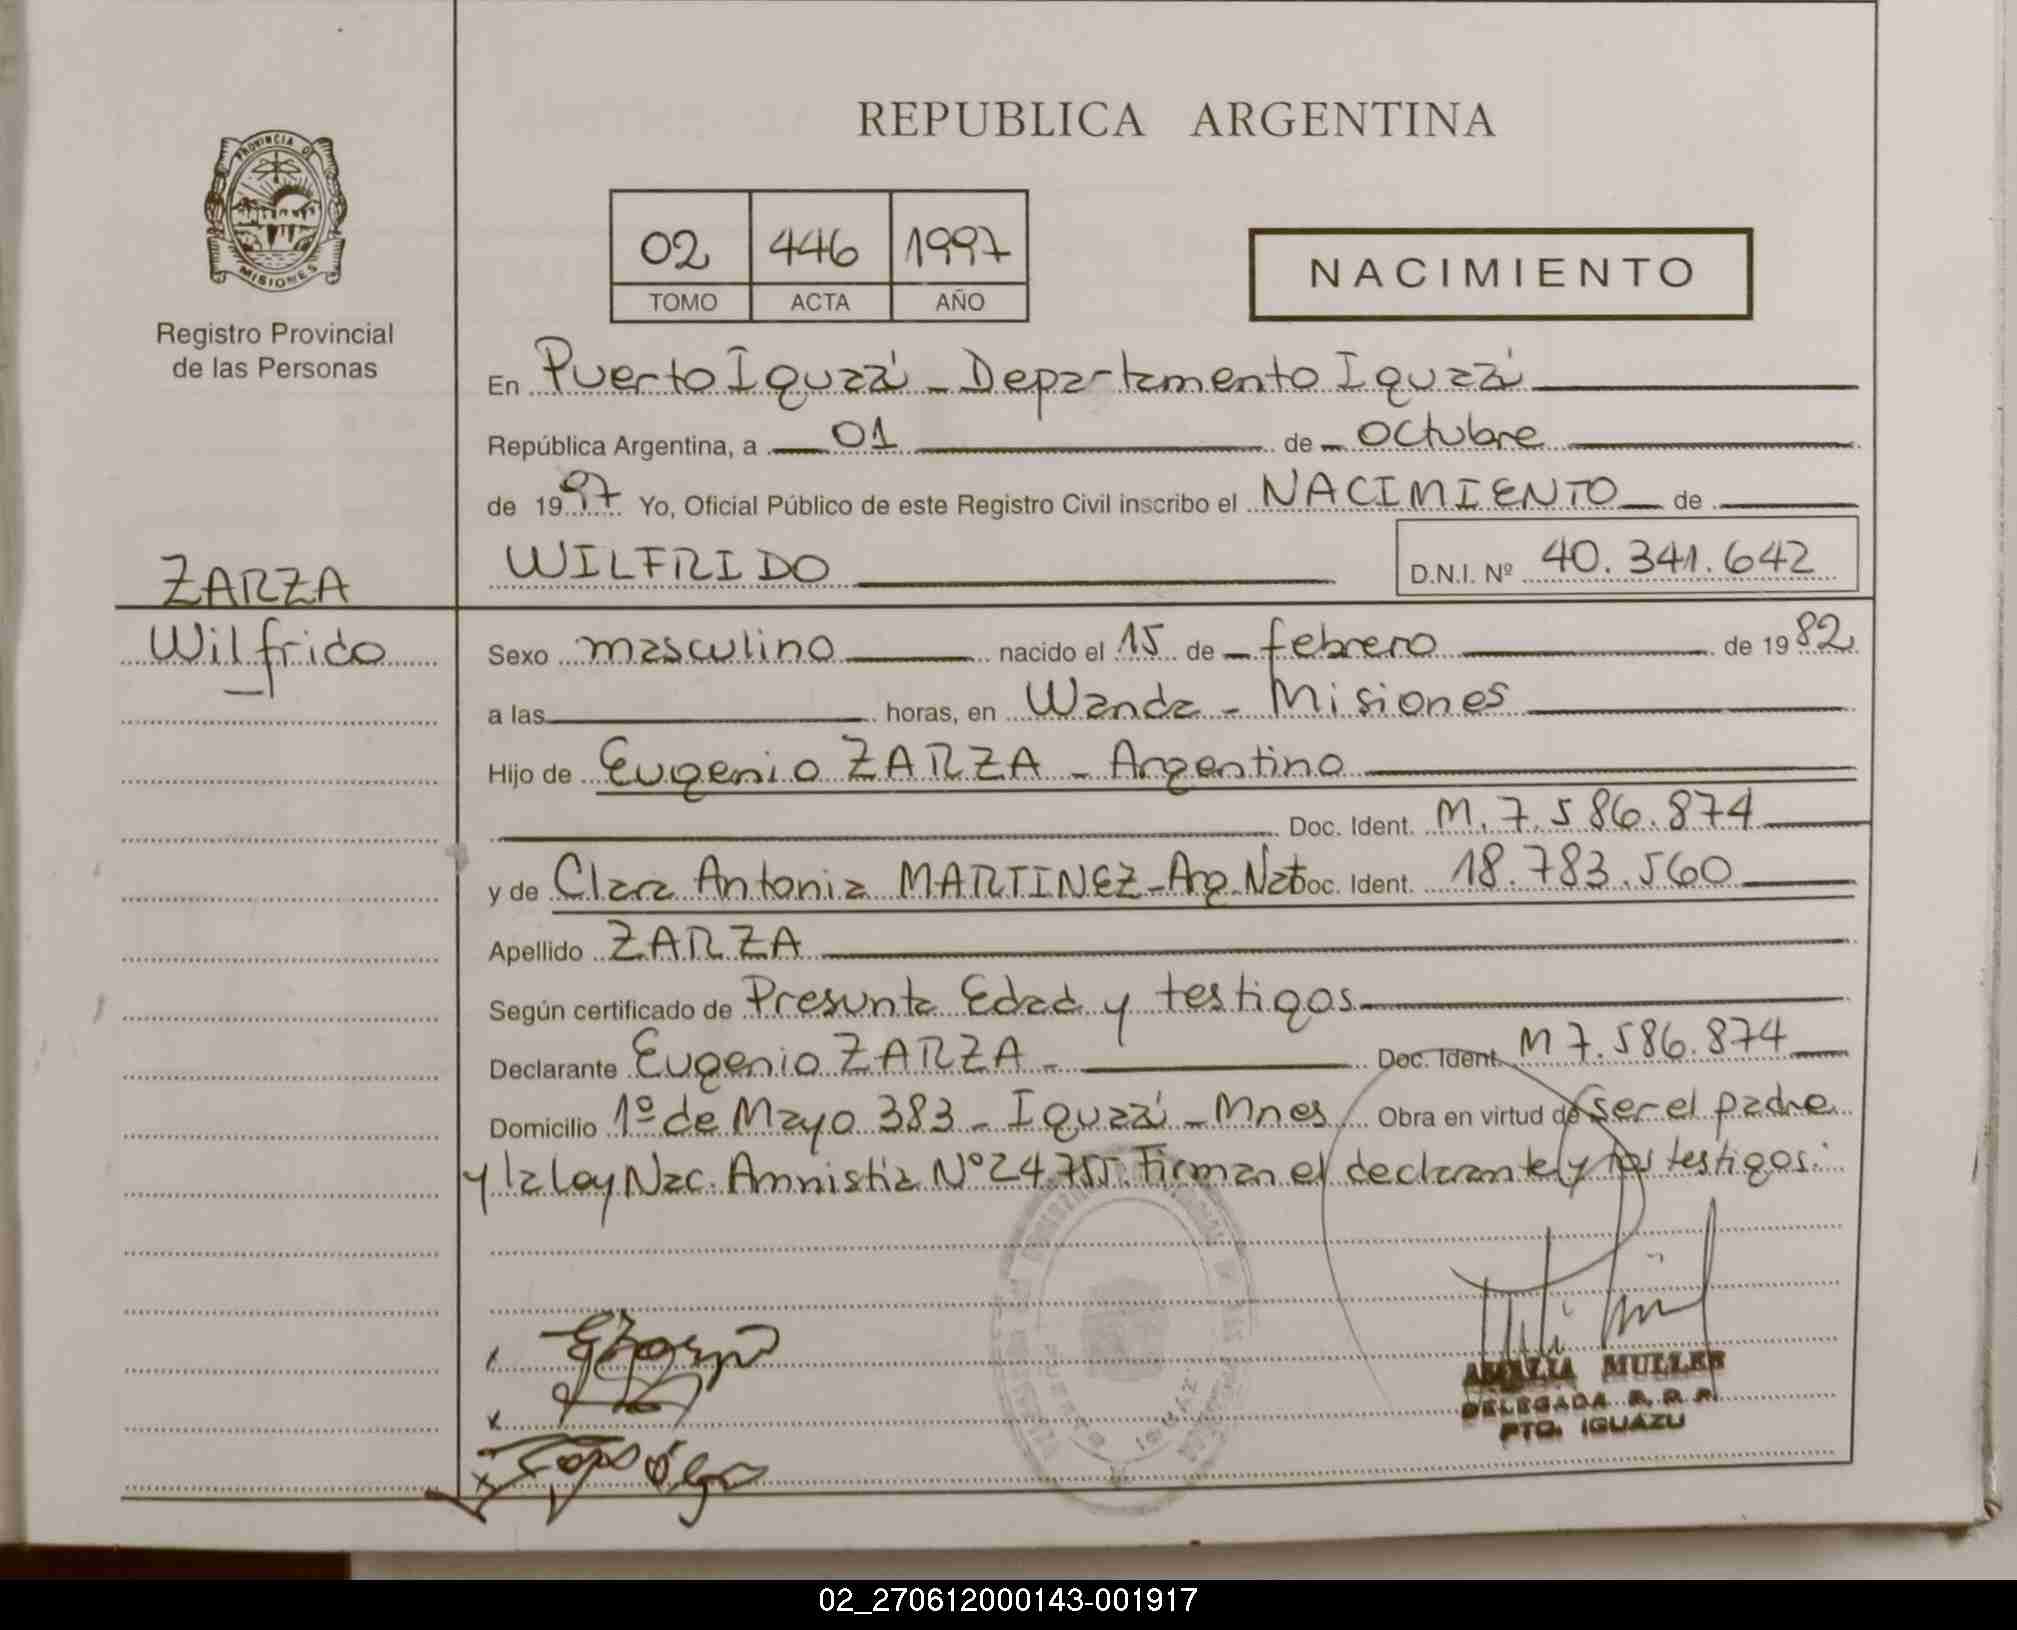 REPUBLICA ARGENTINA
PROVINCIA DE
MISIONES
Registro Provincial
de las Personas
02 446 1997
TOMO ACTA AÑO
NACIMIENTO
En Puerto Iguazú - Departamento Iguazú
República Argentina, a 01 de Octubre
de 1997 Yo, Oficial Público de este Registro Civil inscribo el NACIMIENTO de
WILFRIDO D.N.I. Nº 40.341.642
ZARZA
Wilfrido
Sexo masculino nacido el 15 de febrero de 1982
a las horas, en Wanda - Misiones
Hijo de Eugenio ZARZA - Argentino
Doc. Ident. M. 7.586.874
y de Clara Antonia MARTINEZ - Arg. Nat Doc. Ident. 18.783.560
Apellido ZARZA
Según certificado de Presunta Edad y testigos
Declarante Eugenio ZARZA - Doc. Ident. M 7.586.874
Domicilio 1º de Mayo 383 - Iguazú - Mnes Obra en virtud de ser el padre
y la Ley Nac. Amnistia Nº 24.755. Firman el declarante y los testigos.
AMALIA MULLER
DELEGADA R. D. P.
PTO. IGUAZU
02_270612000143-001917